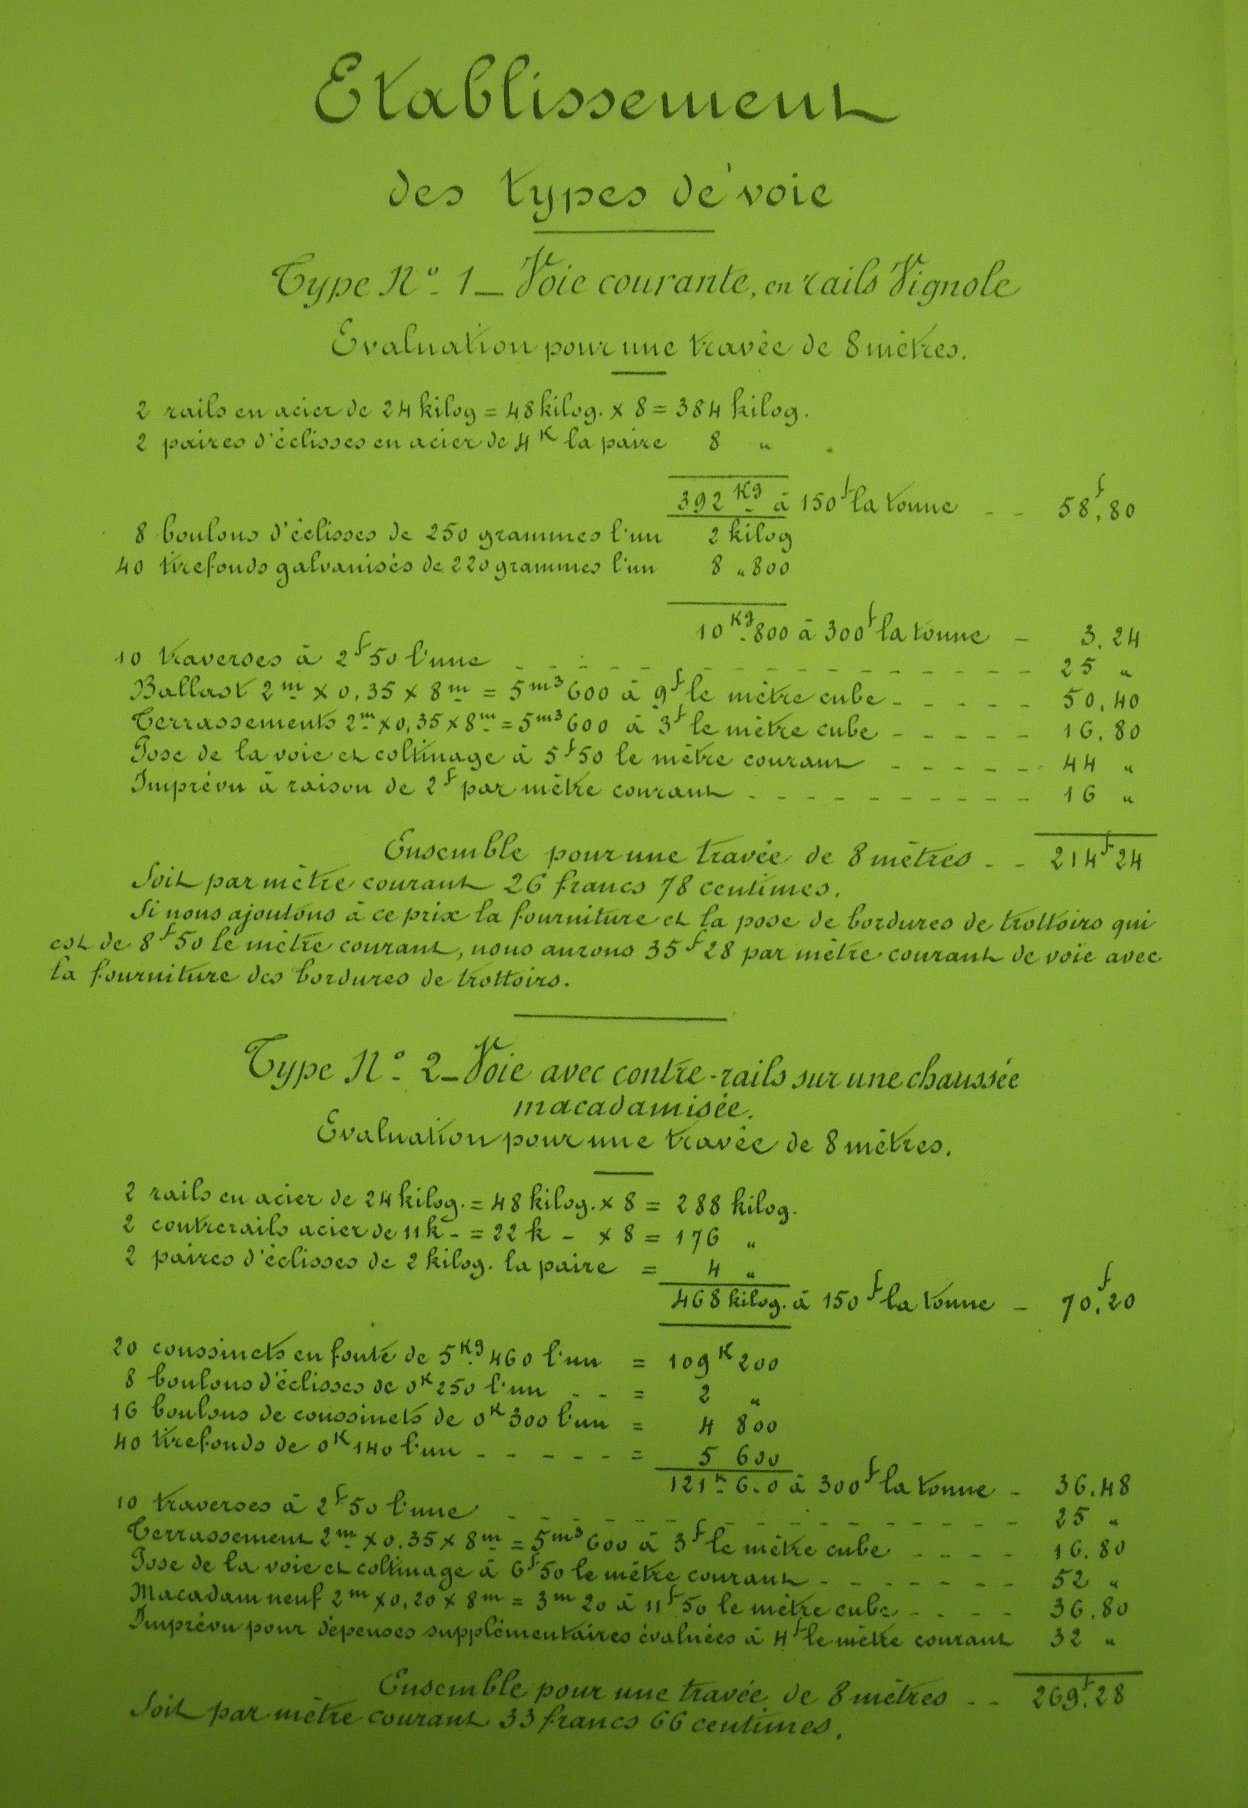 Etablissement
des types de voie
Type N° 1 _ Voie courante, en rails Vignole
Evaluation pour une travée de 8 mètres.
2 rails en acier de 24 kilog = 48 kilog. x 8 = 384 kilog.
2 paires d'éclisses en acier de 4 K la paire 8 "
392 Kg à 150 f la tonne - - 58 f, 80
8 boulons d'éclisses de 250 grammes l'un 2 kilog
40 tirefonds galvanisés de 220 grammes l'un 8 " 800
10 Kg 800 à 300 f la tonne - 3, 24
10 traverses à 2 f 50 l'une - - - - - 25 "
Ballast 2 m x 0,35 x 8 m = 5 m3 600 à 9 f le mètre cube - - - - - 50, 40
Terrassements 2 m x 0,35 x 8 m = 5 m3 600 à 3 f le mètre cube - - - - - 16. 80
Pose de la voie et coltinage à 5 f 50 le mètre courant - - - - - 44 "
Imprévu à raison de 2 f par mètre courant - - - - - 16 "
Ensemble pour une travée de 8 mètres - - 214 f 24
Soit par mètre courant 26 francs 78 centimes.
Si nous ajoutons à ce prix la fourniture et la pose de bordures de trottoirs qui
est de 8 f 50 le mètre courant, nous aurons 35 f 28 par mètre courant de voie avec
la fourniture des bordures de trottoirs.
Type N° 2 _ Voie avec contre-rails sur une chaussée
macadamisée.
Evaluation pour une travée de 8 mètres.
2 rails en acier de 24 kilog. = 48 kilog. x 8 = 288 kilog.
2 contrerails acier de 11 k - = 22 k - x 8 = 176 "
2 paires d'éclisses de 2 kilog. la paire = 4 "
468 kilog. à 150 f la tonne - 70 f, 20
20 coussinets en fonte de 5 Kg 460 l'un = 109 K 200
8 boulons d'éclisses de 0 K 250 l'un - - = 2 "
16 boulons de coussinets de 0 K 300 l'un = 4 800
40 tirefonds de 0 K 140 l'un - - - - - = 5 600
121 K 600 à 300 f la tonne - 36. 48
10 traverses à 2 f 50 l'une - - - - - 25 "
Terrassement 2 m x 0.35 x 8 m = 5 m3 600 à 3 f le mètre cube - - - - 16. 80
Pose de la voie et coltinage à 6 f 50 le mètre courant - - - - - 52 "
Macadam neuf 2 m x 0,20 x 8 m = 3 m 20 à 11 f 50 le mètre cube - - - - 36. 80
Imprévu pour dépenses supplémentaires évaluées à 4 f le mètre courant 32 "
Ensemble pour une travée de 8 mètres - - 269 f. 28
Soit par mètre courant 33 francs 66 centimes.